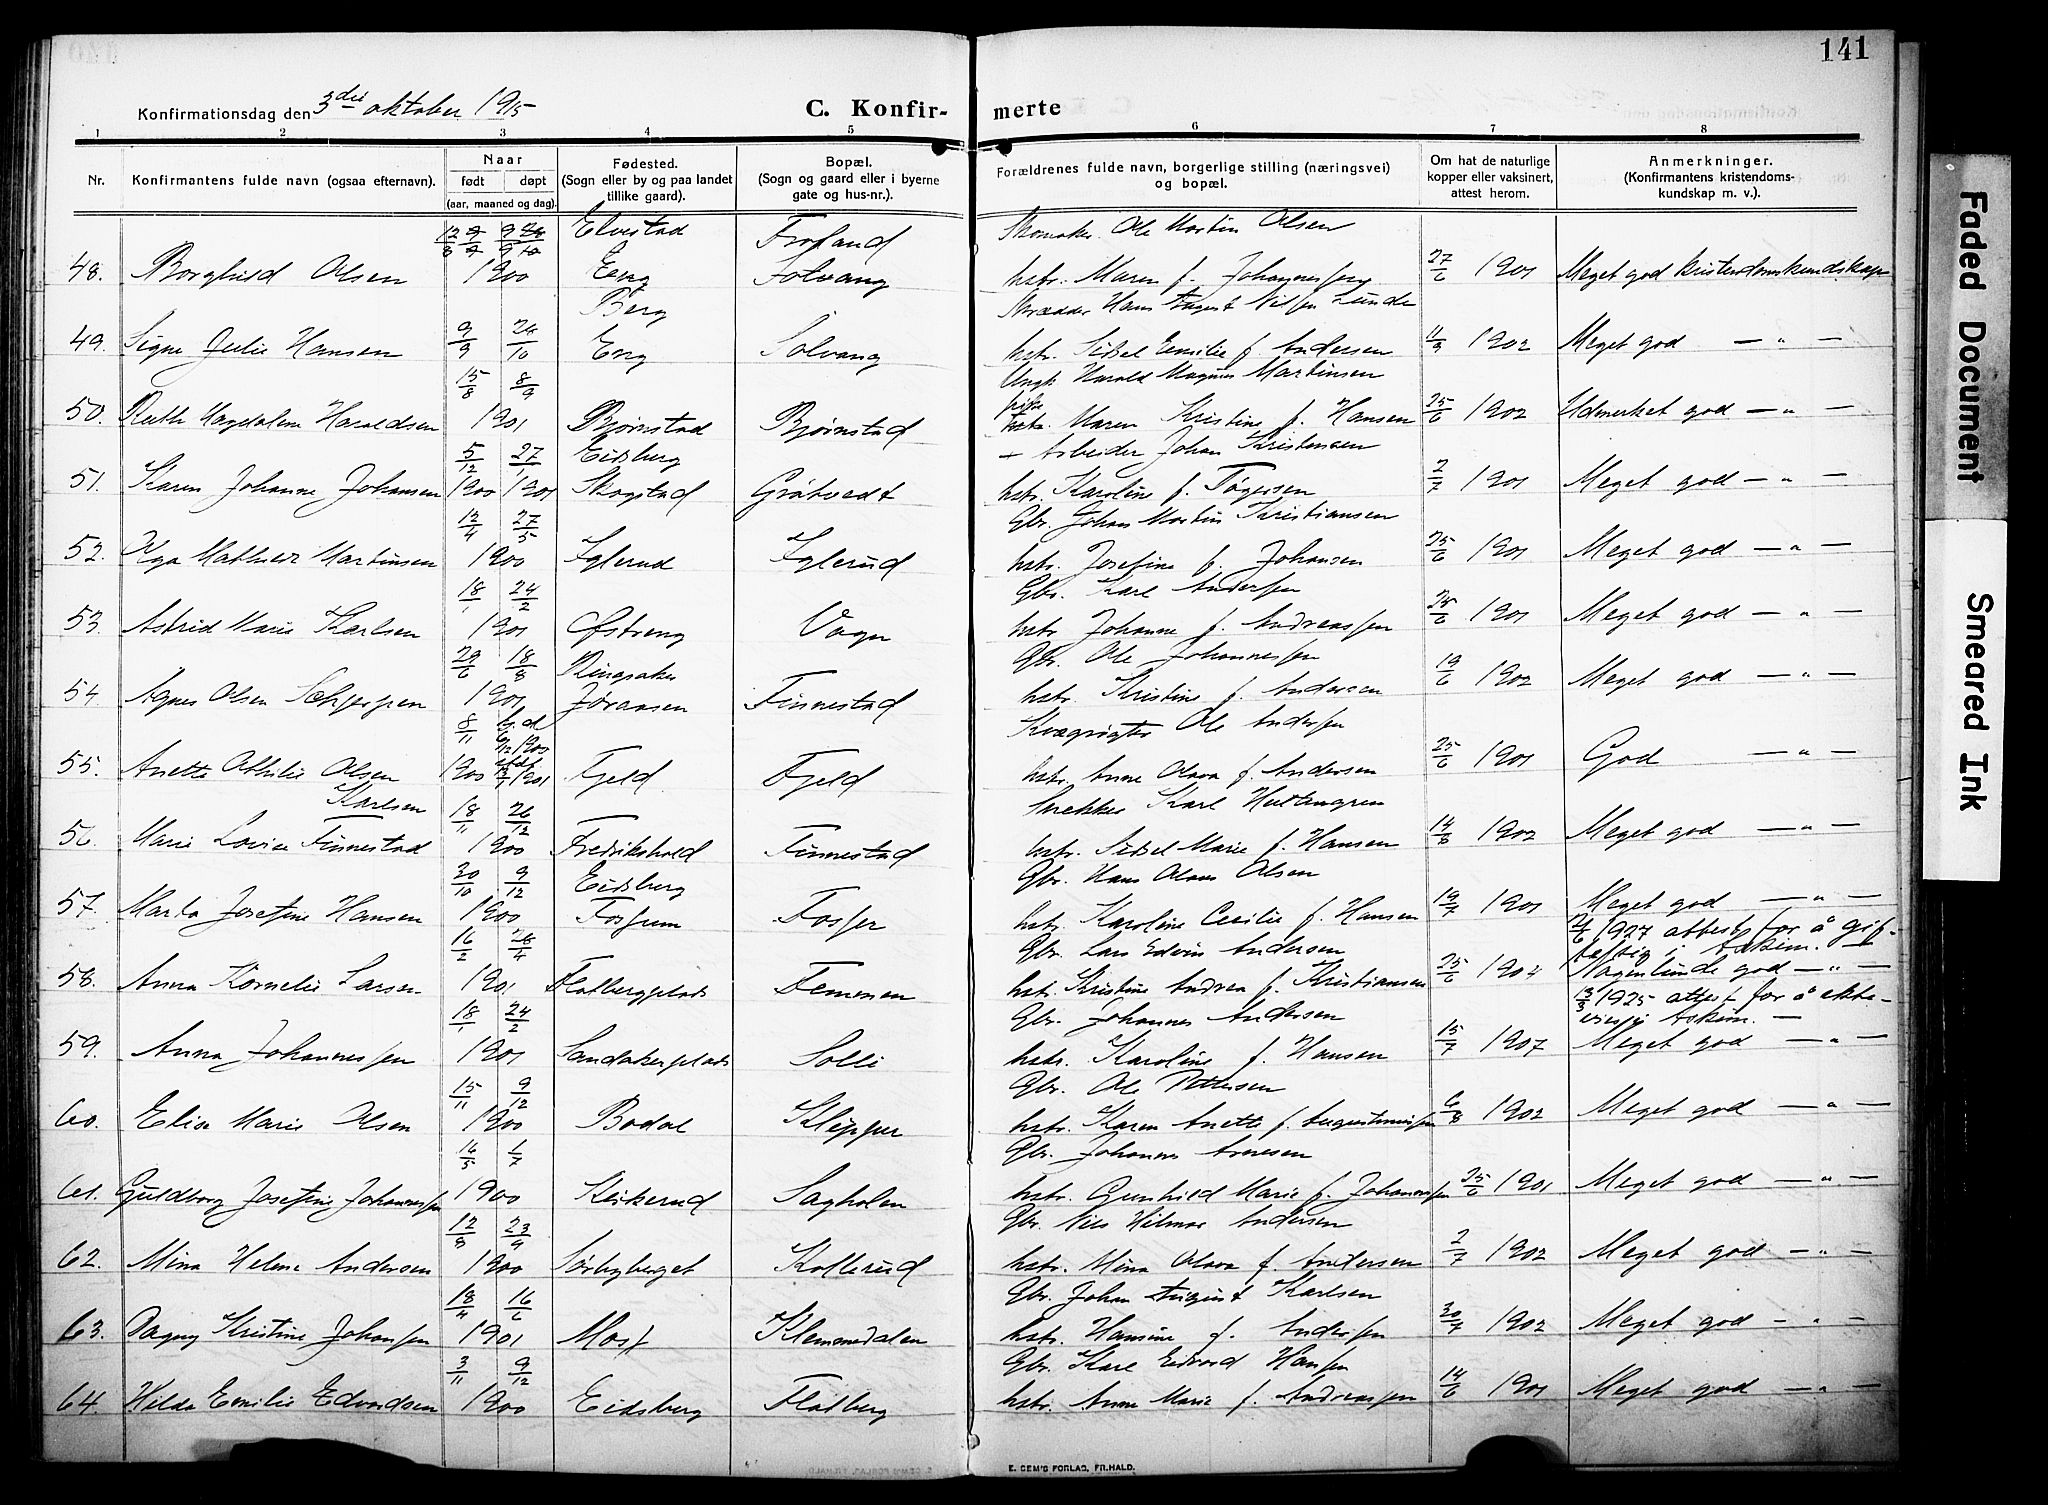 141
Konfirmationsdag den 3die oktober 1915
C. Konfir-
merte
1 2 3 4 5 6 7 8
Nr.
Konfirmantens fulde navn (ogsaa efternavn).
Naar
født døpt
(aar, maaned og dag).
Fødested.
(Sogn eller by og paa landet
tillike gaard).
Bopæl.
(Sogn og gaard eller i byerne
gate og hus-nr.).
Forældrenes fulde navn, borgerlige stilling (næringsvei)
og bopæl.
Om hat de naturlige
kopper eller vaksinert,
attest herom.
Anmerkninger.
(Konfirmantens kristendoms-
kundskap m. v.).
Skomaker Ole Martin Olsen
48. Borghild Olsen 1900 Eng Solvang hstr. Maren f. Johannessen 27/6 1901 Meget god kristendomskundskap
Berg Skrædder Hans August Nilsen Lunde
49. Signe Julie Hansen 9/9 26/10 Eng Solvang hstr. Sidsel Emilie f. Andersen 1902 Meget god — " —
15/8 8/9 Ungk. Harald Magnus Martinsen
50. Ruth Magdalene Haraldsen 1901 Bjørnstad Bjørnstad pike Maren Kristine f. Hansen 25/6 1902 Udmerket god — " —
5/12 27/1 Eidsberg Arbeider Johan Kristensen
51. Karen Johanne Johansen 1900 1901 Skogstad Gråtvedt hstr. Karoline f. Tøgersen 2/7 1901 Meget god — " —
12/4 27/5 Gbr. Johan Martin Kristiansen
52. Olga Mathilde Martinsen 1900 Iglerud Iglerud hstr. Josefine f. Johansen 25/6 1901 Meget god — " —
18/1 24/2 Gbr. Karl Andersen
53. Astrid Marie Karlsen 1901 Østreng Vogn hstr. Johanne f. Andreassen 1901 Meget god — " —
29/6 18/8 Ringsaker Gbr. Ole Johannessen
54 Agnes Olsen 1901 Jøransen Finnestad hstr. Kristine f. Andersen 19/6 1902 Meget god — " —
8/11 Kvægrøgter Ole Andersen
55. Anette Othilie Olsen 1900 1901 Fjeld Fjeld hstr. Anne Olava f. Andersen 25/6 1901 God — " —
Karlsen 18/11 26/12 Karl
56. Marie Lovise Finnestad 1900 Fredrikshald Finnestad hstr. Sidsel Marie f. Hansen 14/6 1902 Meget god — " —
30/10 9/12 Eidsberg Gbr. Hans Olaus Olsen
57. Marta Josefine Hansen 1900 Fosserum Fosser hstr. Karoline Cecilie f. Hansen 19/7 1901 Meget god — " —
16/2 Gbr. Lars Edvin Andersen 1927 attest for å gif-
te sig i Askim. —
58. Anna Kornelie Larsen 1901 Flatbergplads Femenen hstr. Kristine Andrea f. Kristiansen 25/6 god — " —
18/1 24/2 Gbr. Johannes Andersen 1925 attest for å ekte-
vies i Askim. —
59. Anna Johannessen 1901 Sandakerplads Solli hstr. Karoline f. Hansen 15/7 1907 Meget god — " —
15/11 9/12 Gbr. Ole Pettersen
60. Elise Marie Olsen 1900 Bodal Klypper hstr. Karen Anette f. Augustinussen 6/8 1902 Meget god — " —
16/5 1/7 Gbr. Johannes Arnesen
61. Guldborg Josefine Johannessen 1900 Kirkerud Sagholen hstr. Gunhild Marie f. Johannessen 25/6 1901 Meget god — " —
12/8 23/9 Gbr. Nils Hilmar Andersen
62. Mina Helene Andersen 1900 Sørbyberget Kollerud hstr. Mina Olava f. Andersen 2/7 1902 Meget god — " —
18/4 16/6 Gbr. Johan August Karlsen
63. Dagny Kristine Johansen 1901 Moss Klemmedalen hstr. Hansine f. Andersen 30/7 1902 Meget god — " —
3/11 9/12 Gbr. Karl Edvard Hansen
64. Hilda Emilie Edvardsen 1900 Eidsberg Flatberg hstr. Anne Marie f. Andreassen 14/6 1901 Meget god — " —
E. SEM'S FORLAG, FR.HALD.
Faded Document
Smeared Ink